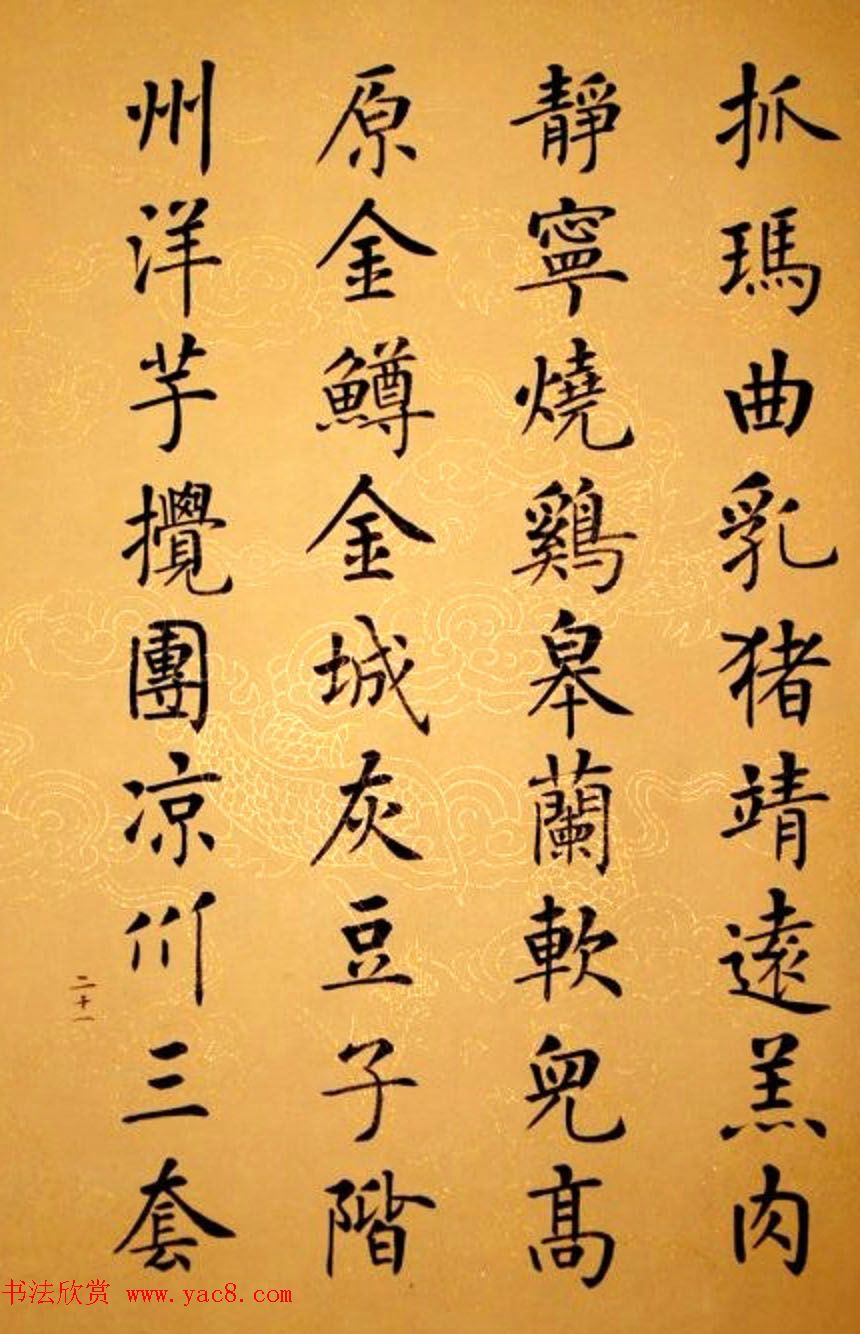 抓瑪曲乳猪靖遠羔肉
靜寧燒鷄皋蘭軟兒髙
原金鱒金城灰豆子階
州洋芋攪團凉州三套
二十一
书法欣赏 www.yac8.com